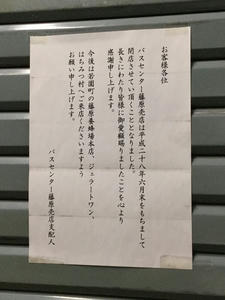 お客様各位
バスセンター藤原売店は平成二十八年六月末をもちまして
閉店させてい頂くこととなりました。
長きにわたり皆様に御愛顧賜りましたことを心より
感謝申し上げます。
今後は若園町の藤原養蜂場本店、ジェラートワン、
はちみつ村へご来店くださいますよう
お願い申し上げます。
バスセンター藤原売店支配人